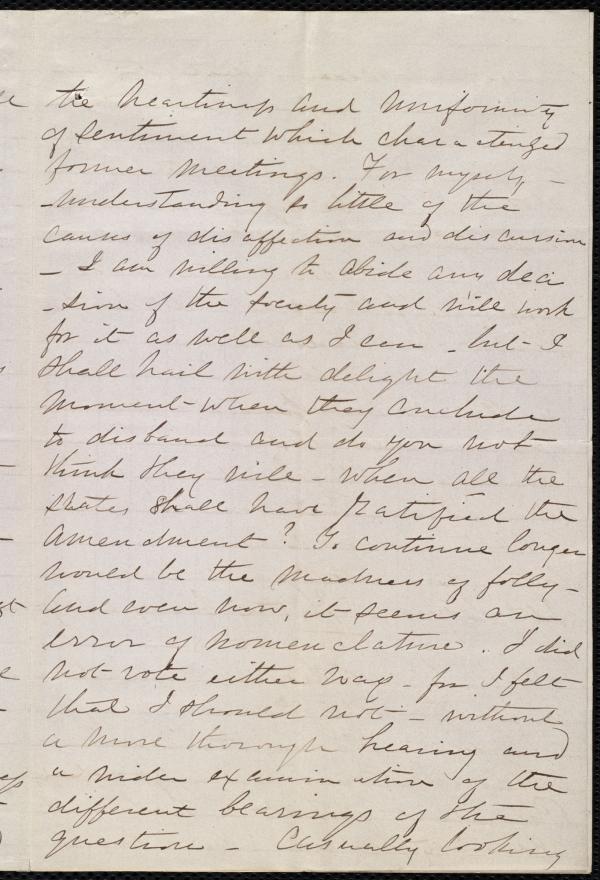 the heartiness and uniformity
of sentiment which characterized
former meetings. For myself, -
- understanding so little of the
causes of disaffection and discussion
- I am willing to abide any deci
-sion of the Society and will work
for it as well as I can - but I
shall hail with delight the
moment when they conclude
to disband and do you not
think they will - when all the
states shall have ratified the
Amendment? To continue longer
would be the madness of folly -
And even now, it seems an
error of nomenclature. I did
not vote either way - for I felt
that I should not - without
a more thorough hearing and
a wider examination of the
different bearings of the
question - Casually looking